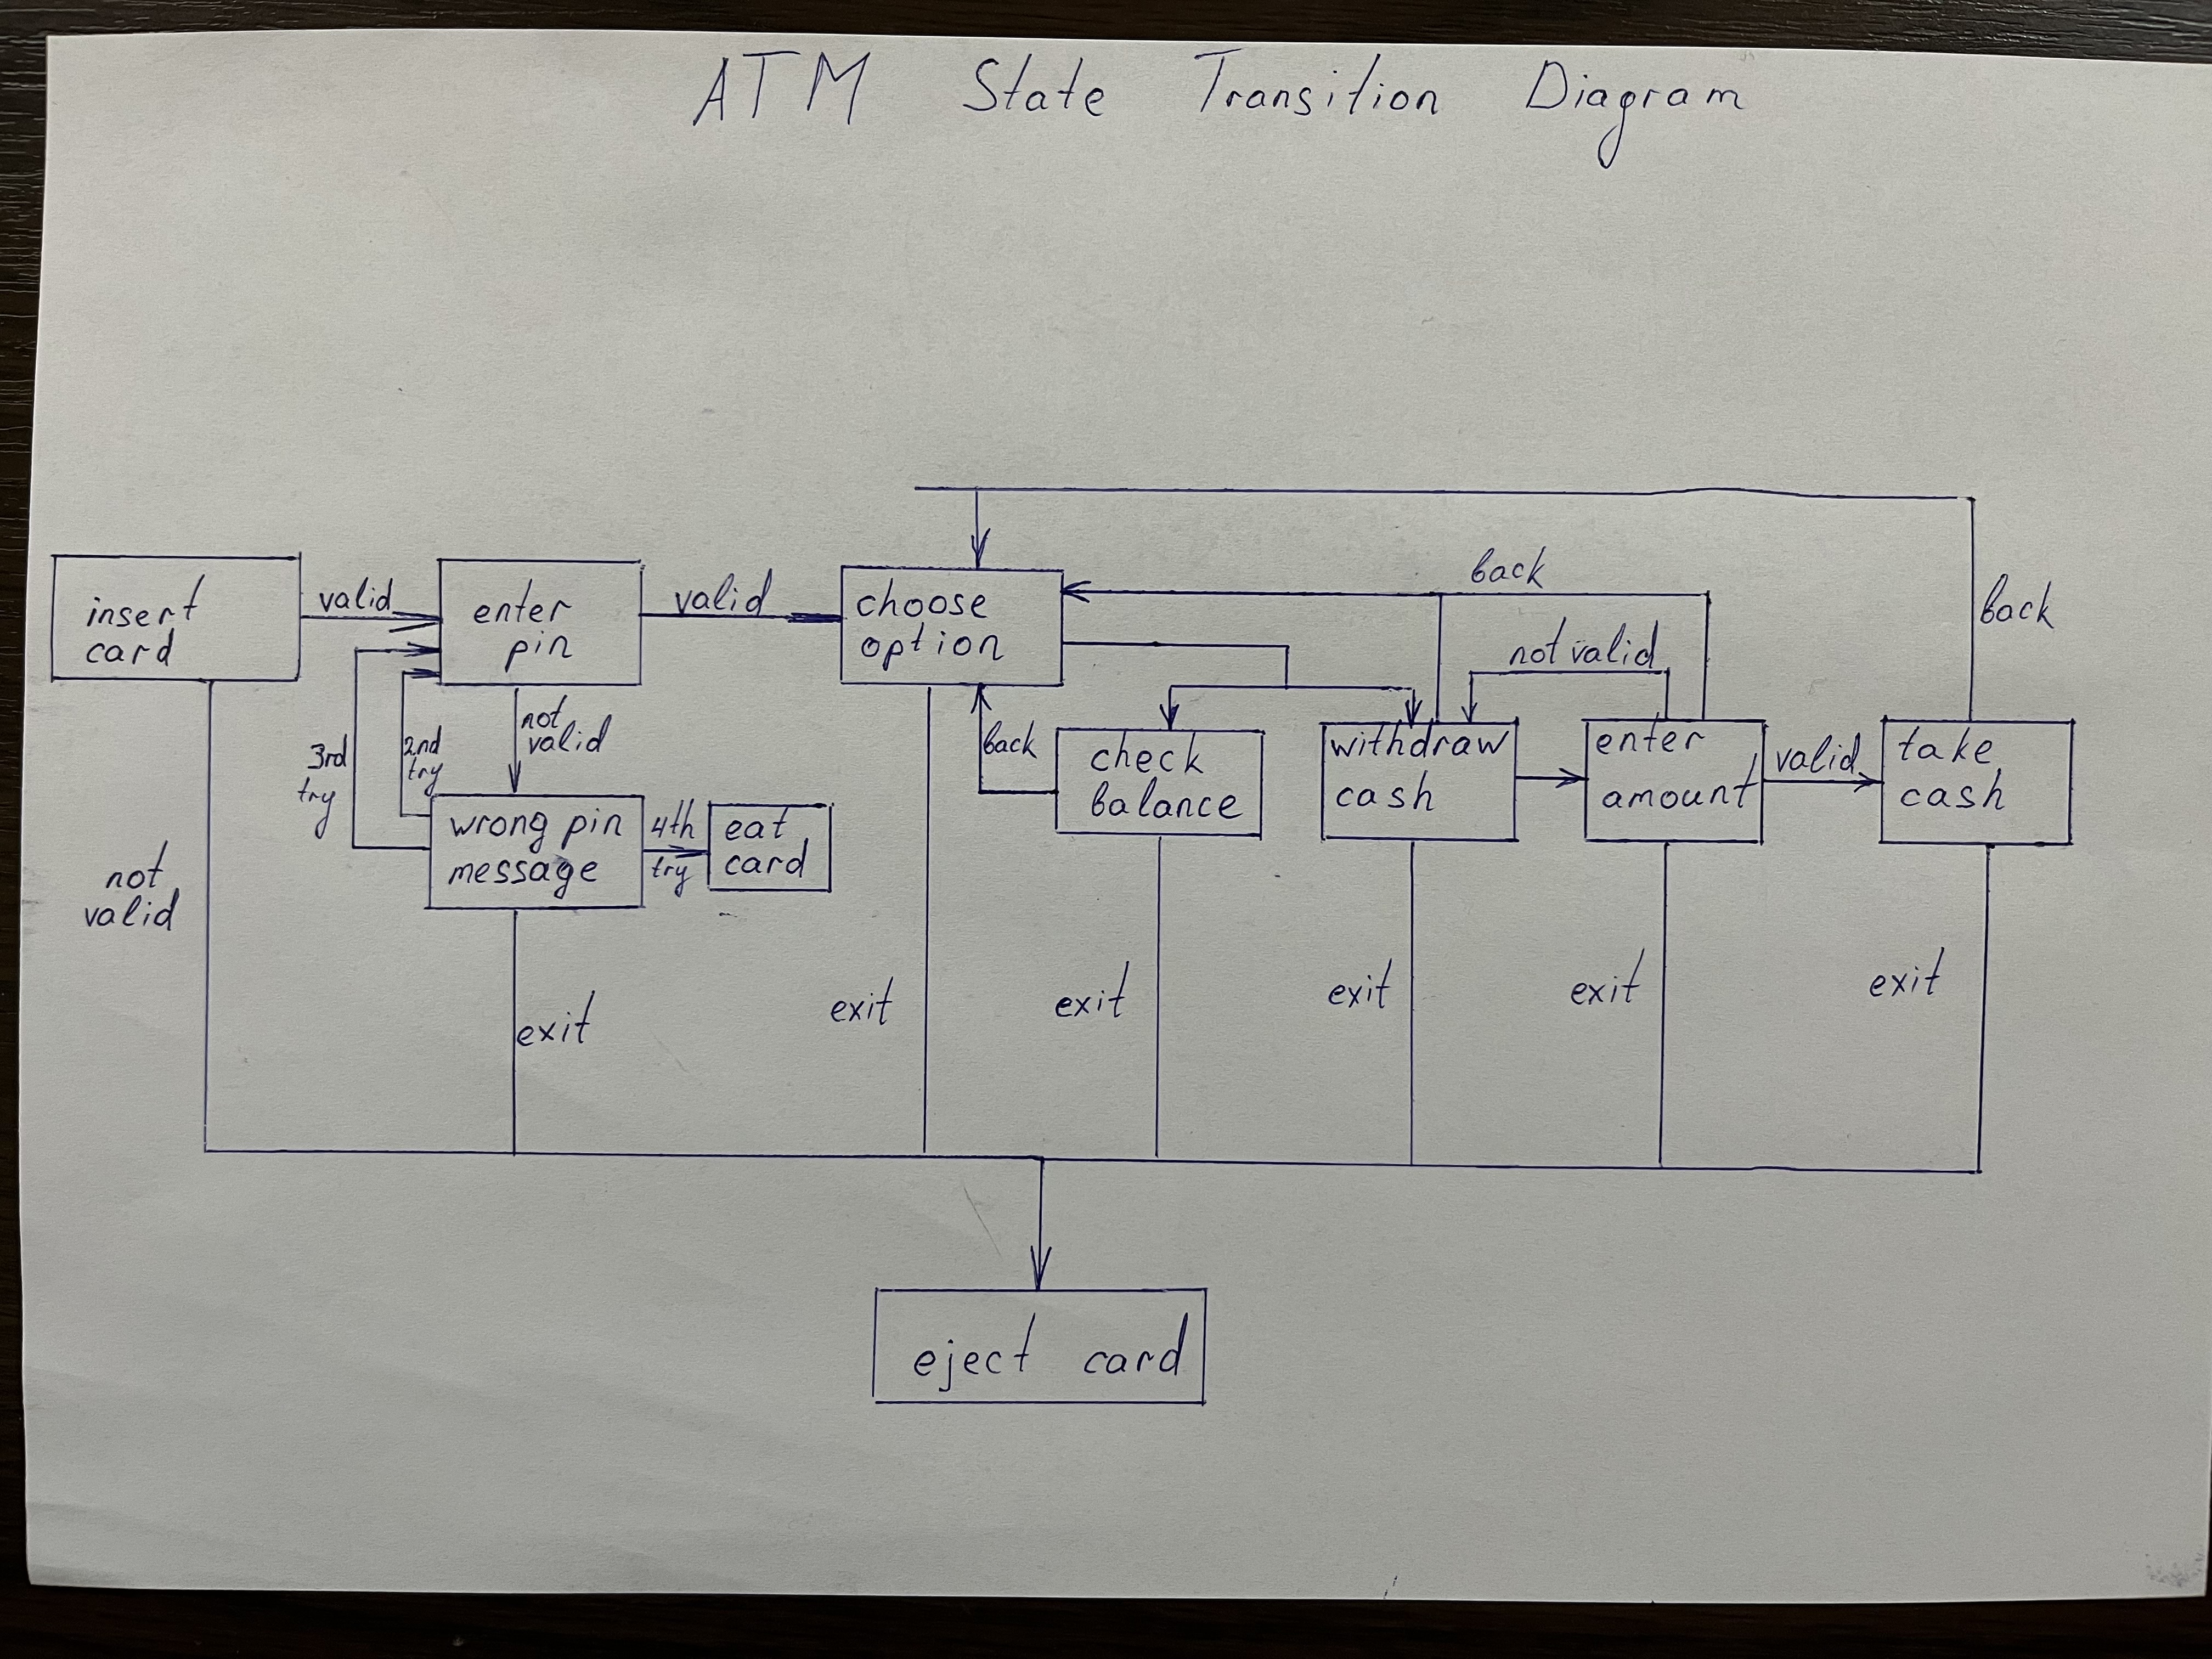 ATM State Transition Diagram
back
insert
card
valid
enter
pin
valid
choose
option
back
not valid
3rd
try
2nd
try
not
valid
back
check
balance
withdraw
cash
enter
amount
valid
take
cash
wrong pin
message
4th
try
eat
card
not
valid
exit
exit
exit
exit
exit
exit
eject card